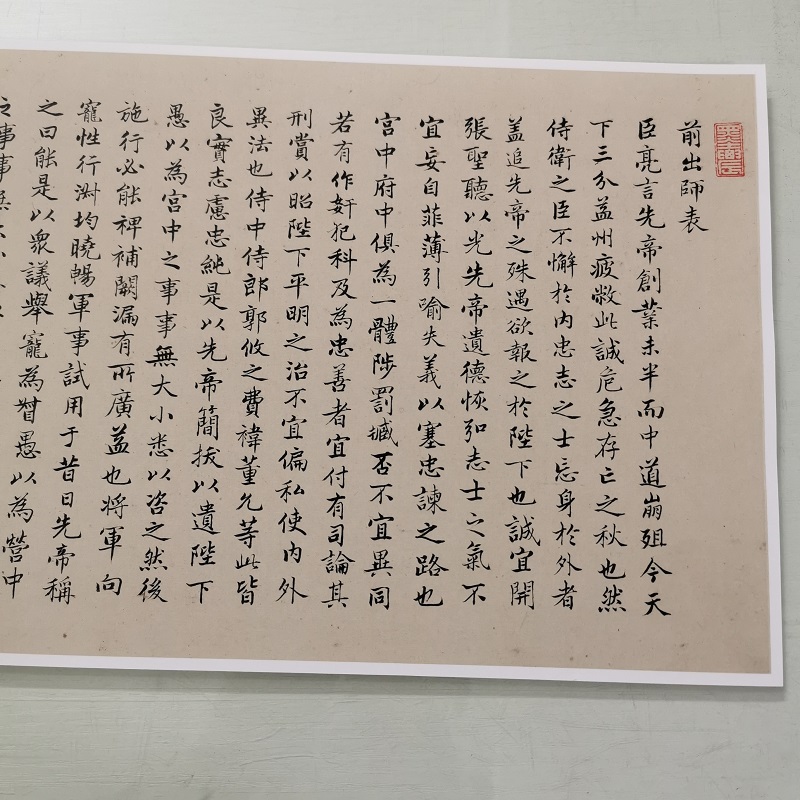 前出師表
臣亮言先帝創業未半而中道崩殂今天
下三分益州疲敝此誠危急存亡之秋也然
侍衛之臣不懈於內忠志之士忘身於外者
蓋追先帝之殊遇欲報之於陛下也誠宜開
張聖聽以光先帝遺德恢弘志士之氣不
宜妄自菲薄引喻失義以塞忠諫之路也
宮中府中俱為一體陟罰臧否不宜異同
若有作奸犯科及為忠善者宜付有司論其
刑賞以昭陛下平明之治不宜偏私使內外
異法也侍中侍郎郭攸之費禕董允等此皆
良實志慮忠純是以先帝簡拔以遺陛下
愚以為宮中之事事無大小悉以咨之然後
施行必能裨補闕漏有所廣益也將軍向
寵性行淑均曉暢軍事試用于昔日先帝稱
之曰能是以眾議舉寵為督愚以為營中
之事事無大小